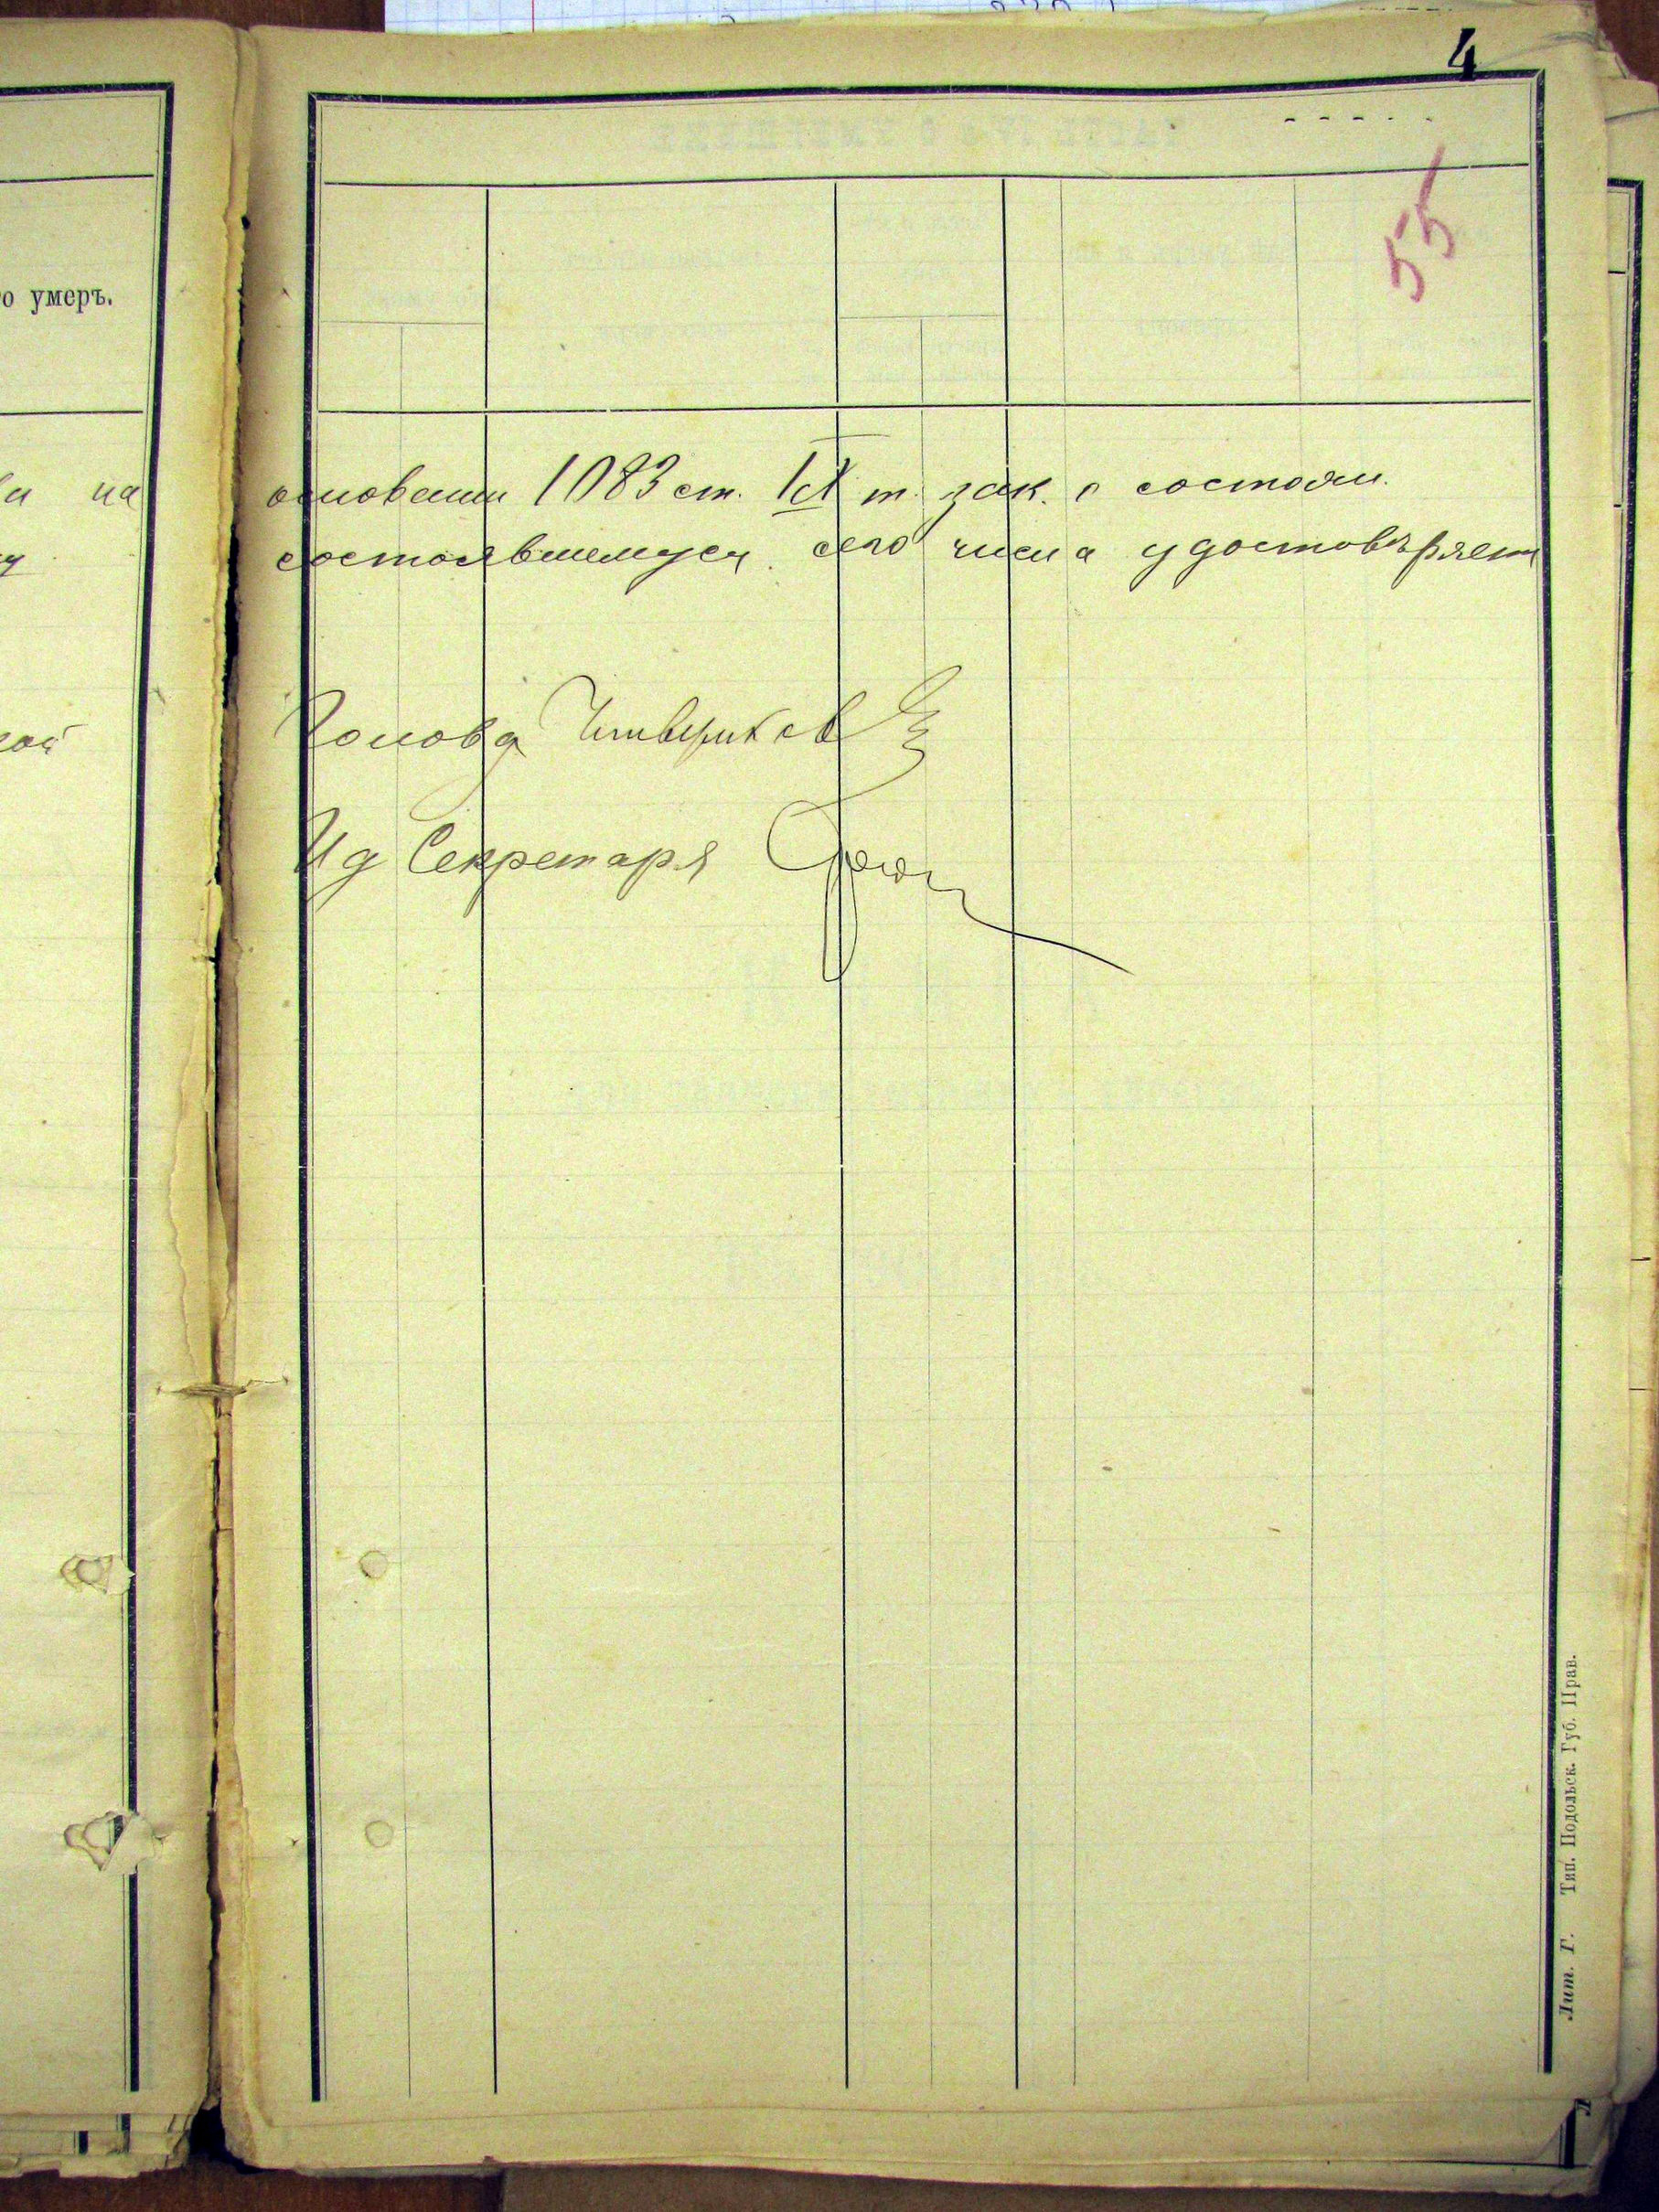 4
55
о умеръ.
на
основании 1083 ст. IX т. зак. о состоян.
состоявшемуся сего числа удостовѣряетъ
Голова Четвериков
Ид Секретаря
Лит. Г. Тип. Подольск. Губ. Прав.